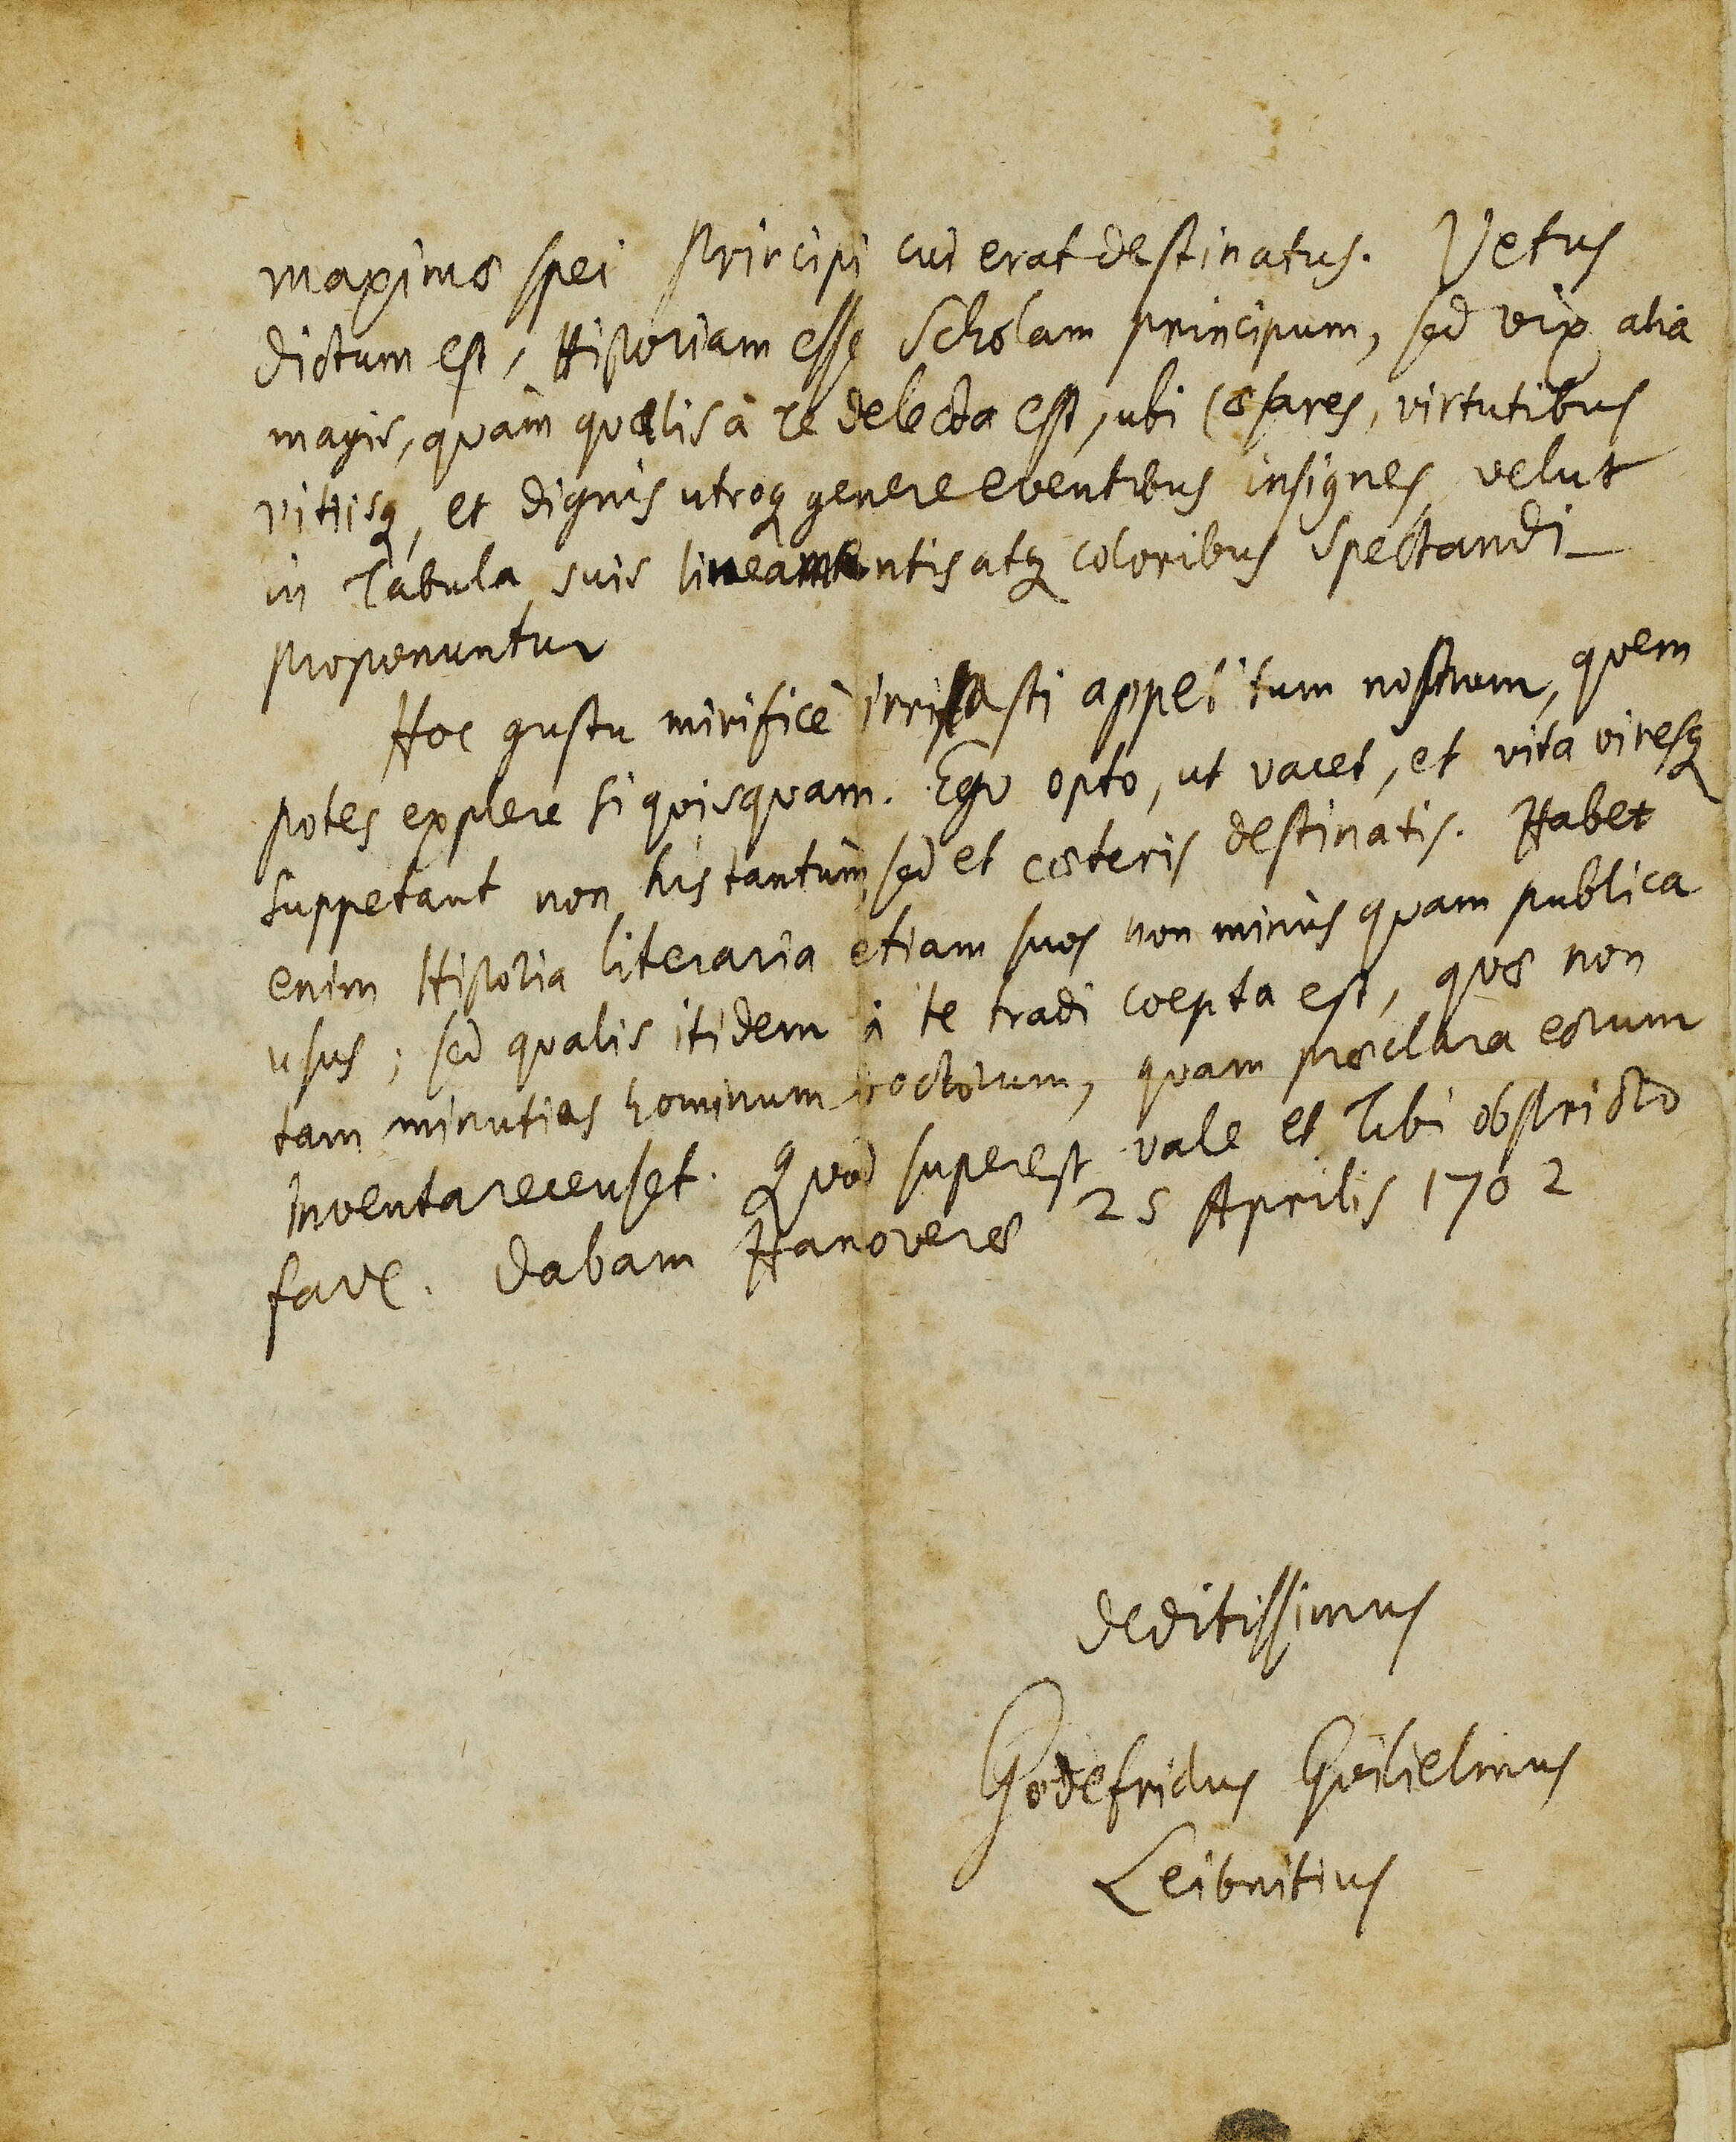 maximæ spei principi cui erat destinatus. Vetus
dictum est, Historiam esse Scholam principum, sed vix alia
magis, quàm qualis à Te delecta est, ubi Cæsares, virtutibus
vitiisq, et dignis utroq genere eventibus insignes velut
in Tabula suis lineamentis atq coloribus spectandi
proponuntur
Hoc gustu mirificè irritasti appetitum nostrum, quem
potes explere si quisquam. Ego opto, ut vacet, et vita viresq
suppetant non his tantùm, sed et cæteris destinatis. Habet
enim Historia literaria etiam suos non minùs quam publica
usus; sed qualis itidem à te tradi coepta est, quæ non
tam minutias hominum doctorum, quam præclara eorum
inventa recenset. Quod superest vale et Tibi obstricto
fave. Dabam Hanoveræ 25 Aprilis 1702
deditissimus
Godefridus Guilielmus
Leibnitius